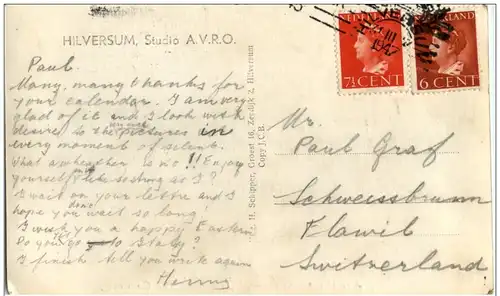 HILVERSUM, Studio A.V.R.O.
Paul.
Many, many thanks for
your calendar. I am very
glad of it and I look with
desire to the pictures in
every moment of silent.
What a weather is it!! Enjoy
yourself just like so long as I?
I wait on your lettre and I
hope you don't wait so long!
I wish you a happy Eastern
Do you go to Italy?
I finish tell you write again
Henny
H. Schipper, Groest 16, Zeedijk 2, Hilversum
Copy J.C.B.
NEDERLAND
7½ CENT
NEDERLAND
6 CENT
III
1947
Mr.
Paul Graf
Schweissbrunn
Flawil
Switzerland